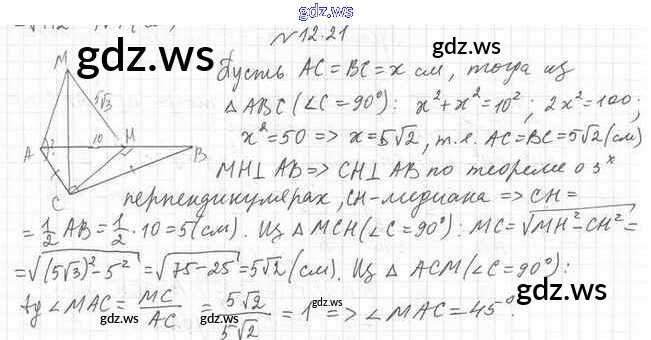 gdz.ru
№12.21
gdz.ru
gdz.ru
Пусть AC=BC=x см, тогда из
△ABC(∠C=90°): x²+x²=10²; 2x²=100;
x²=50 => x=5√2, т.е. AC=BC=5√2(см)
MH⊥AB=>CH⊥AB по теореме о 3ˣ
перпендикулярах, CH-медиана => CH=
=1/2 AB=1/2·10=5(см). Из △MCH(∠C=90°): MC=√(MH²-CH²)=
=√((5√3)²-5²)=√(75-25)=5√2(см). Из △ACM(∠C=90°):
tg∠MAC=MC/AC=5√2/5√2=1=>∠MAC=45°.
M
5√3
A
10
H
B
C
gdz.ru
gdz.ru
gdz.ru
gdz.ru